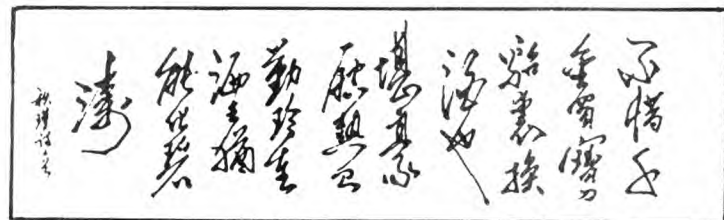 不惜千
金買寶刀
貂裘換
酒也
堪豪一
腔熱血
勤珍重
洒去猶
能化碧
濤
秋瑾詩